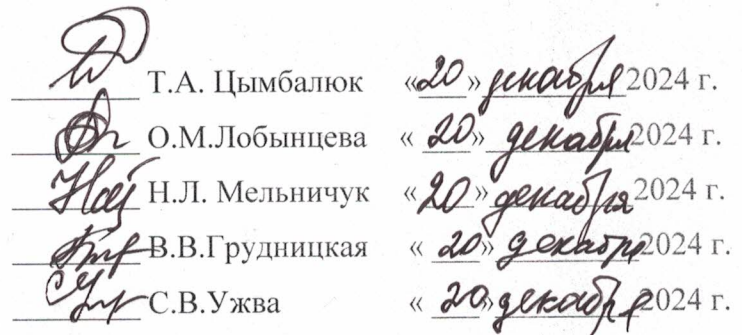 Т.А. Цымбалюк «20» декабря 2024 г.
О.М.Лобынцева «20» декабря 2024 г.
Н.Л. Мельничук «20» декабря 2024 г.
В.В.Грудницкая «20» декабря 2024 г.
С.В.Ужва «20» декабря 2024 г.